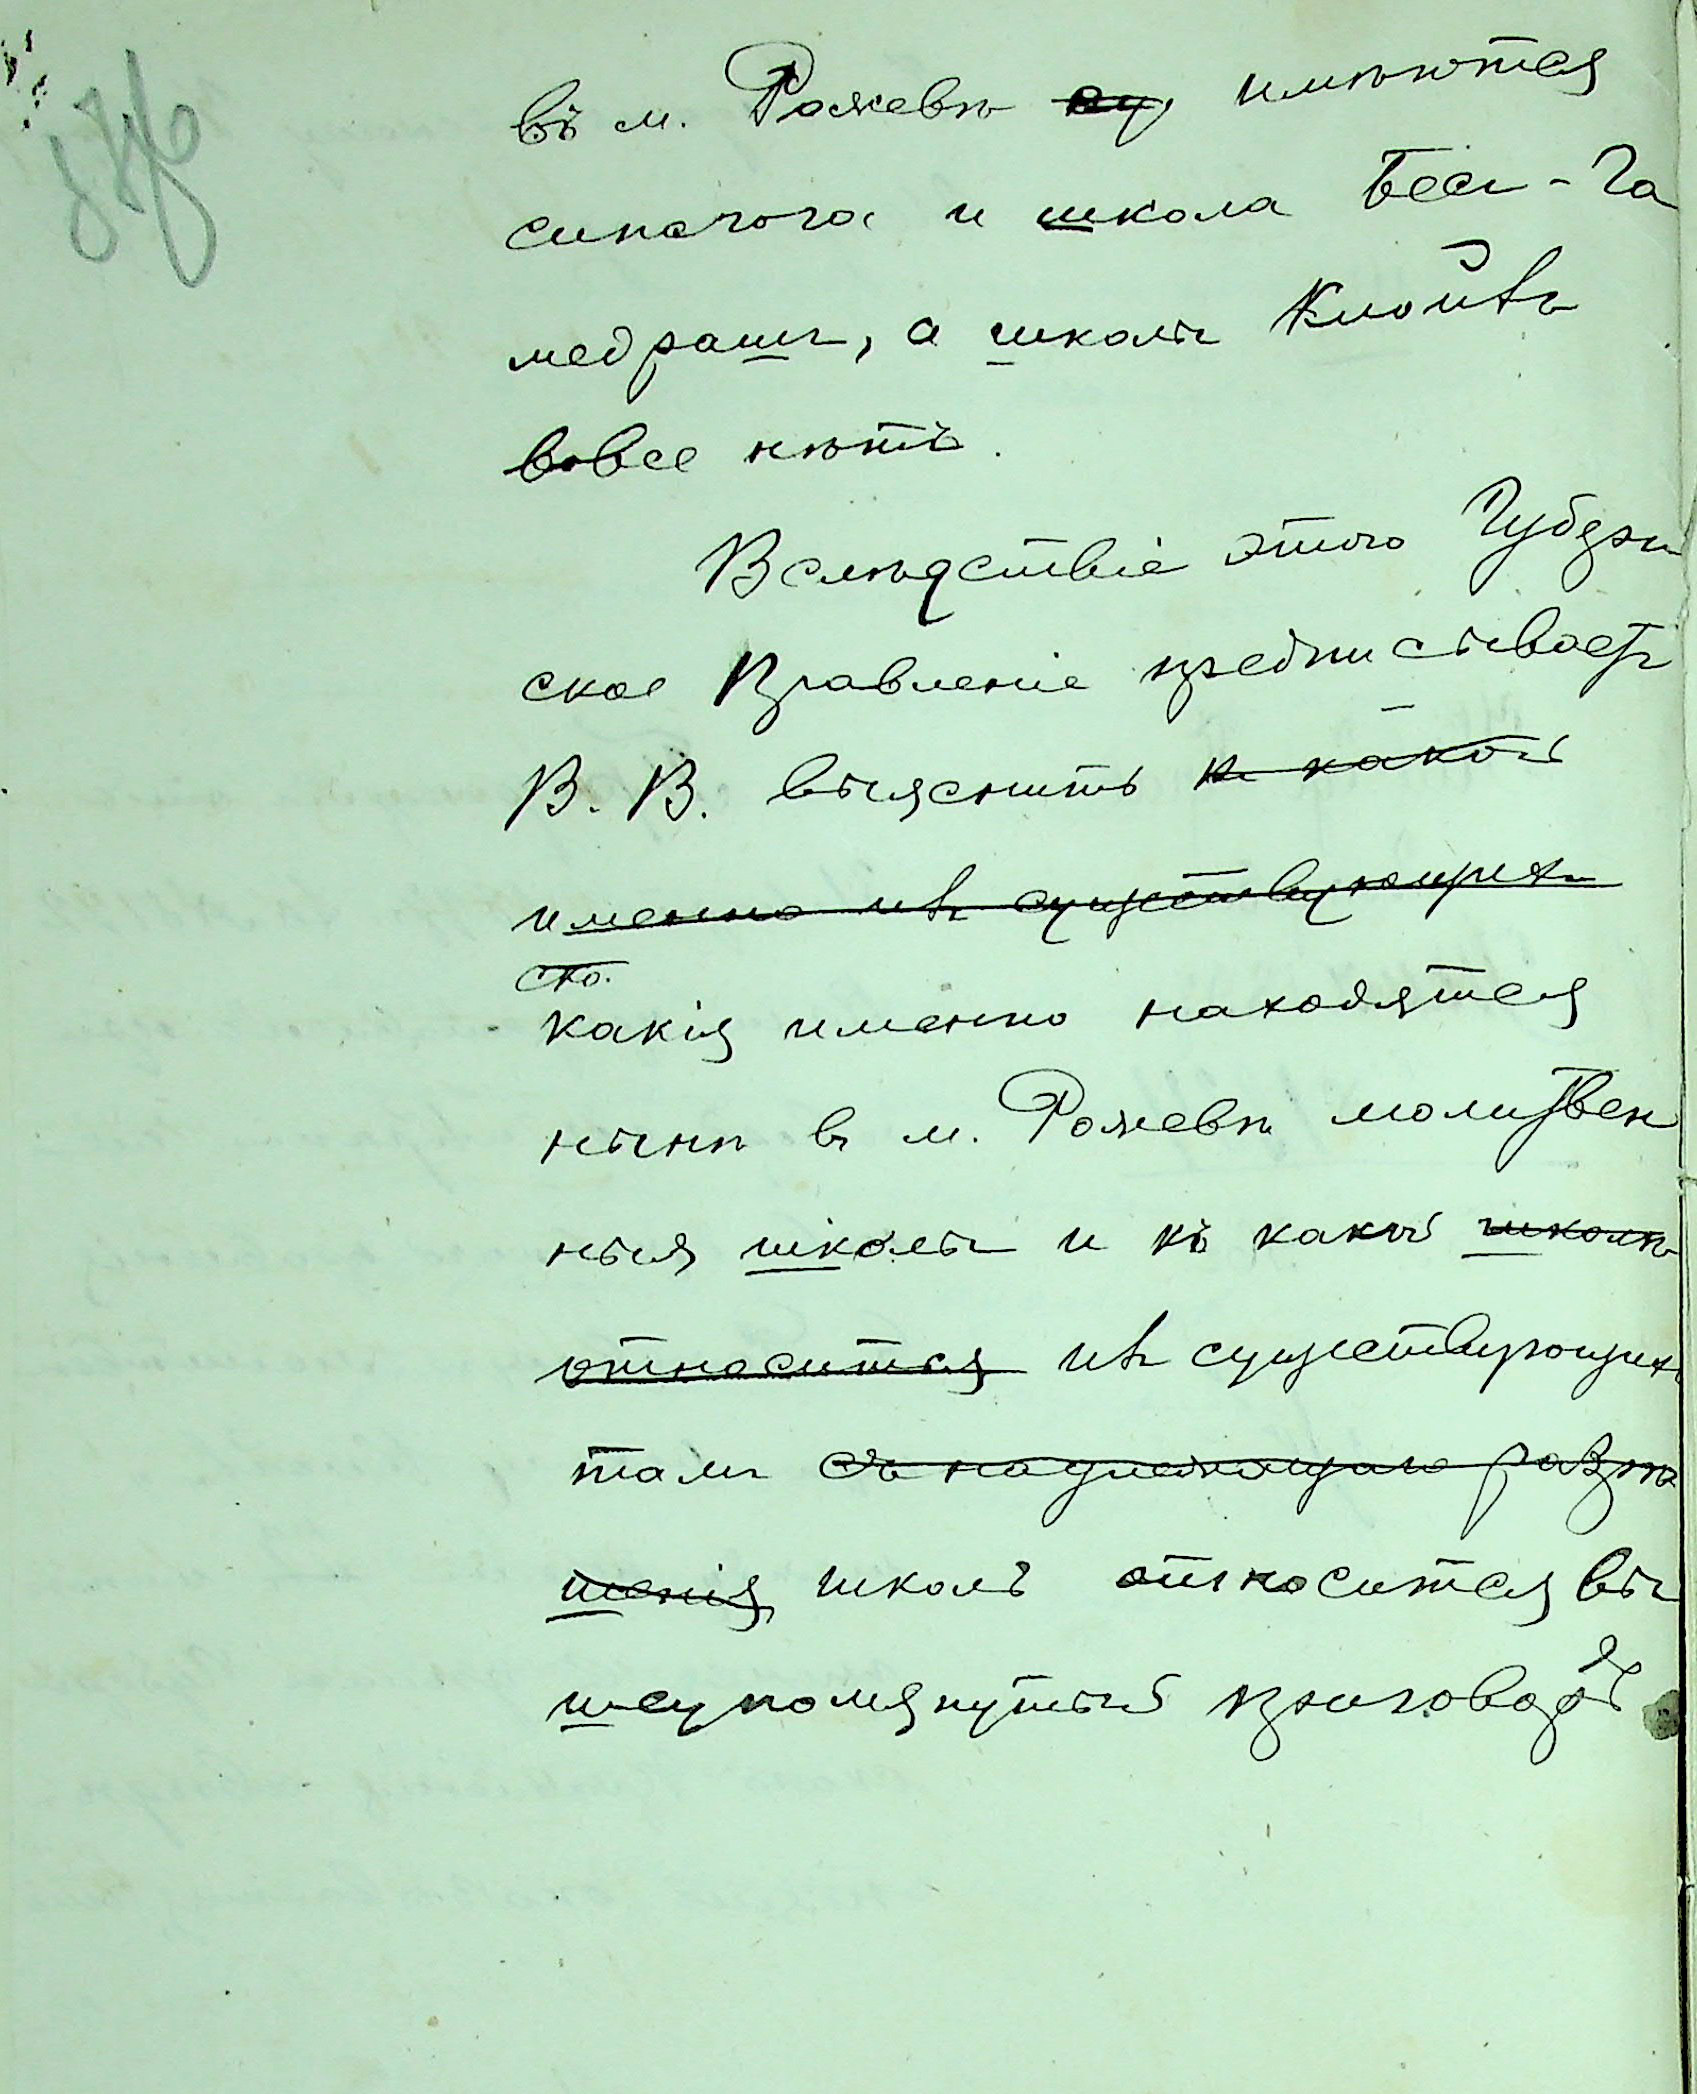 въ м. Рожевѣ су имѣются
синагога и школа Бесъ-Га
медрашъ, а школы Клойзъ
вовсе нѣтъ.
Вслѣдствіе этого Губерн
ское Правленіе предписываетъ
В. В. выяснить къ какой
именно изъ существующихъ
какія именно находятся
нынѣ въ м. Рожевѣ молитвен
ныя школы и къ какой школѣ
относится изъ существующихъ
тамъ съ надлежащаго разрѣ
шенія школъ относится вы
шеупомянутый приговоръ